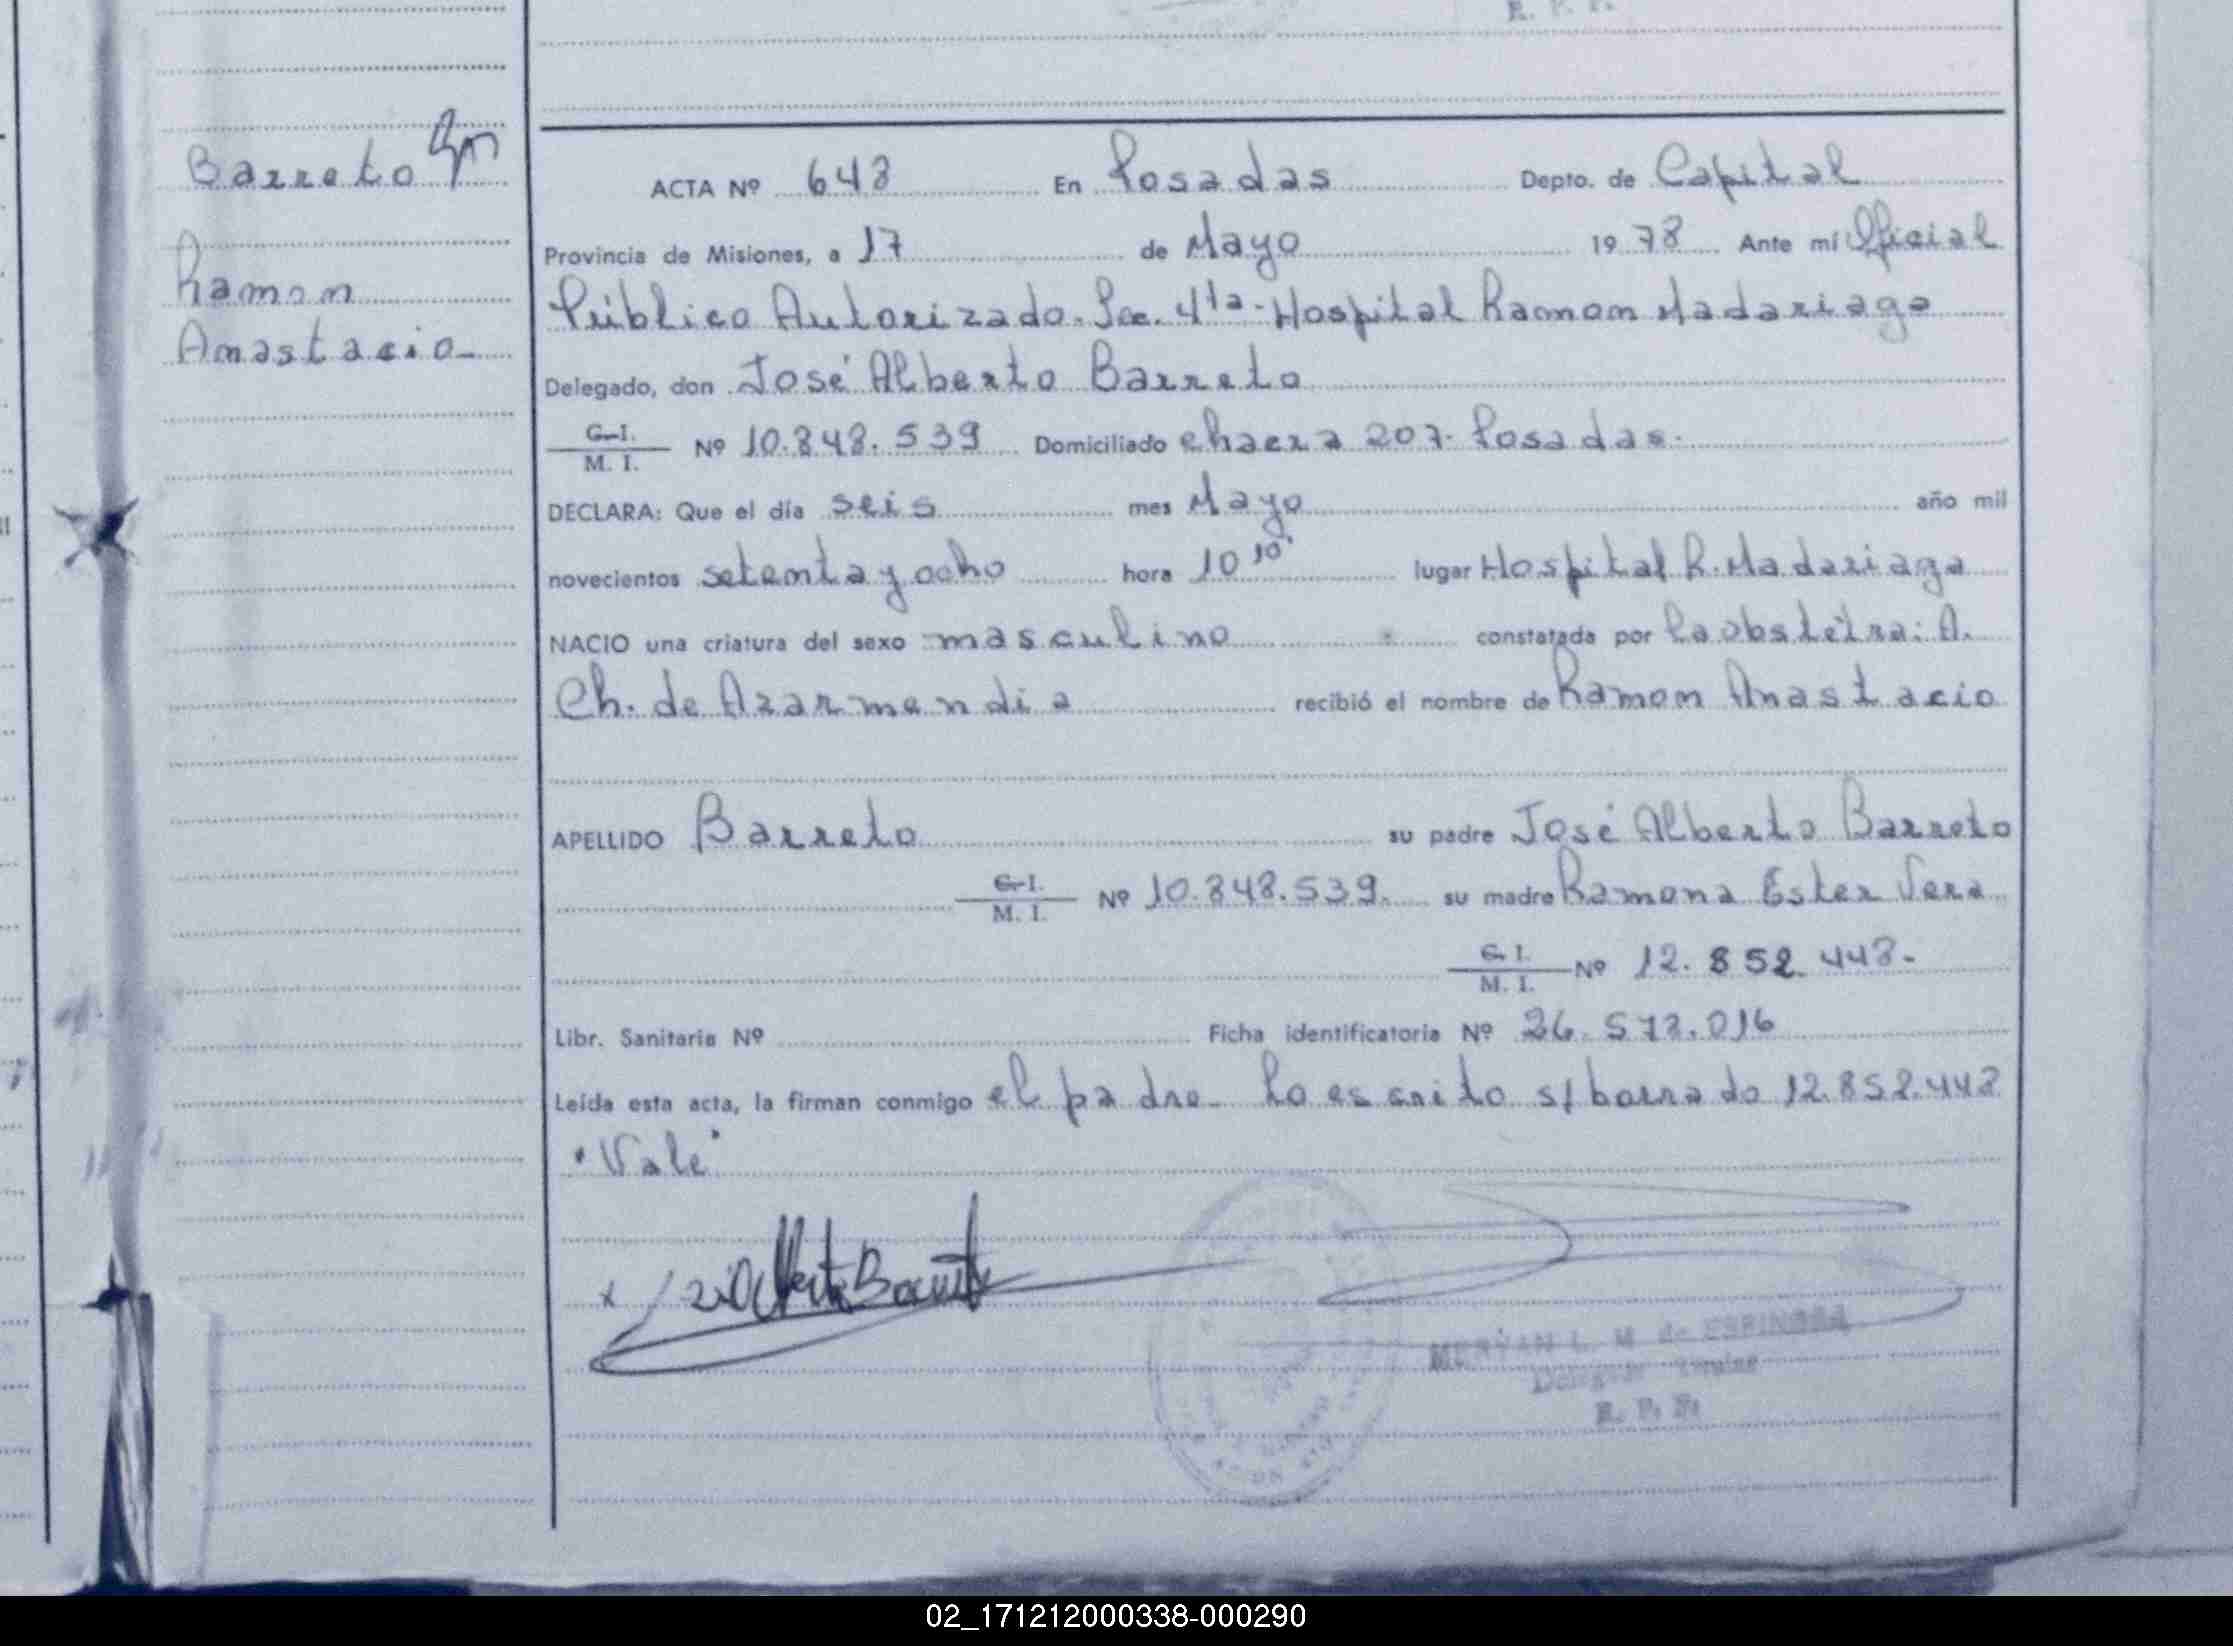 R. P. P.
Barreto
Ramon
Anastacio_
ACTA Nº 648 En Posadas Depto. de Capital
Provincia de Misiones, a 17 de Mayo 1978 Ante mí Oficial
Público Autorizado. Sec. 4ta - Hospital Ramon Madariaga
Delegado, don José Alberto Barreto
C.I. / M. I. Nº 10.848.539 Domiciliado chacra 207. Posadas.
DECLARA: Que el día seis mes Mayo año mil
novecientos setenta y ocho hora 10 10' lugar Hospital R. Madariaga
NACIO una criatura del sexo masculino constatada por la obstétra: A.
Ch. de Azarmendia recibió el nombre de Ramon Anastacio
APELLIDO Barreto su padre José Alberto Barreto
C.I. / M. I. Nº 10.848.539. su madre Ramona Ester Vera
C.I. / M. I. Nº 12.852.448.-
Libr. Sanitaria Nº Ficha identificatoria Nº 26.573.016
Leída esta acta, la firman conmigo el padre_ Lo escrito s/borrado 12.852.448
"Vale"
x José Alberto Barreto
MERYAN L. M. de ESPINOSA
R. P. P.
02_171212000338-000290